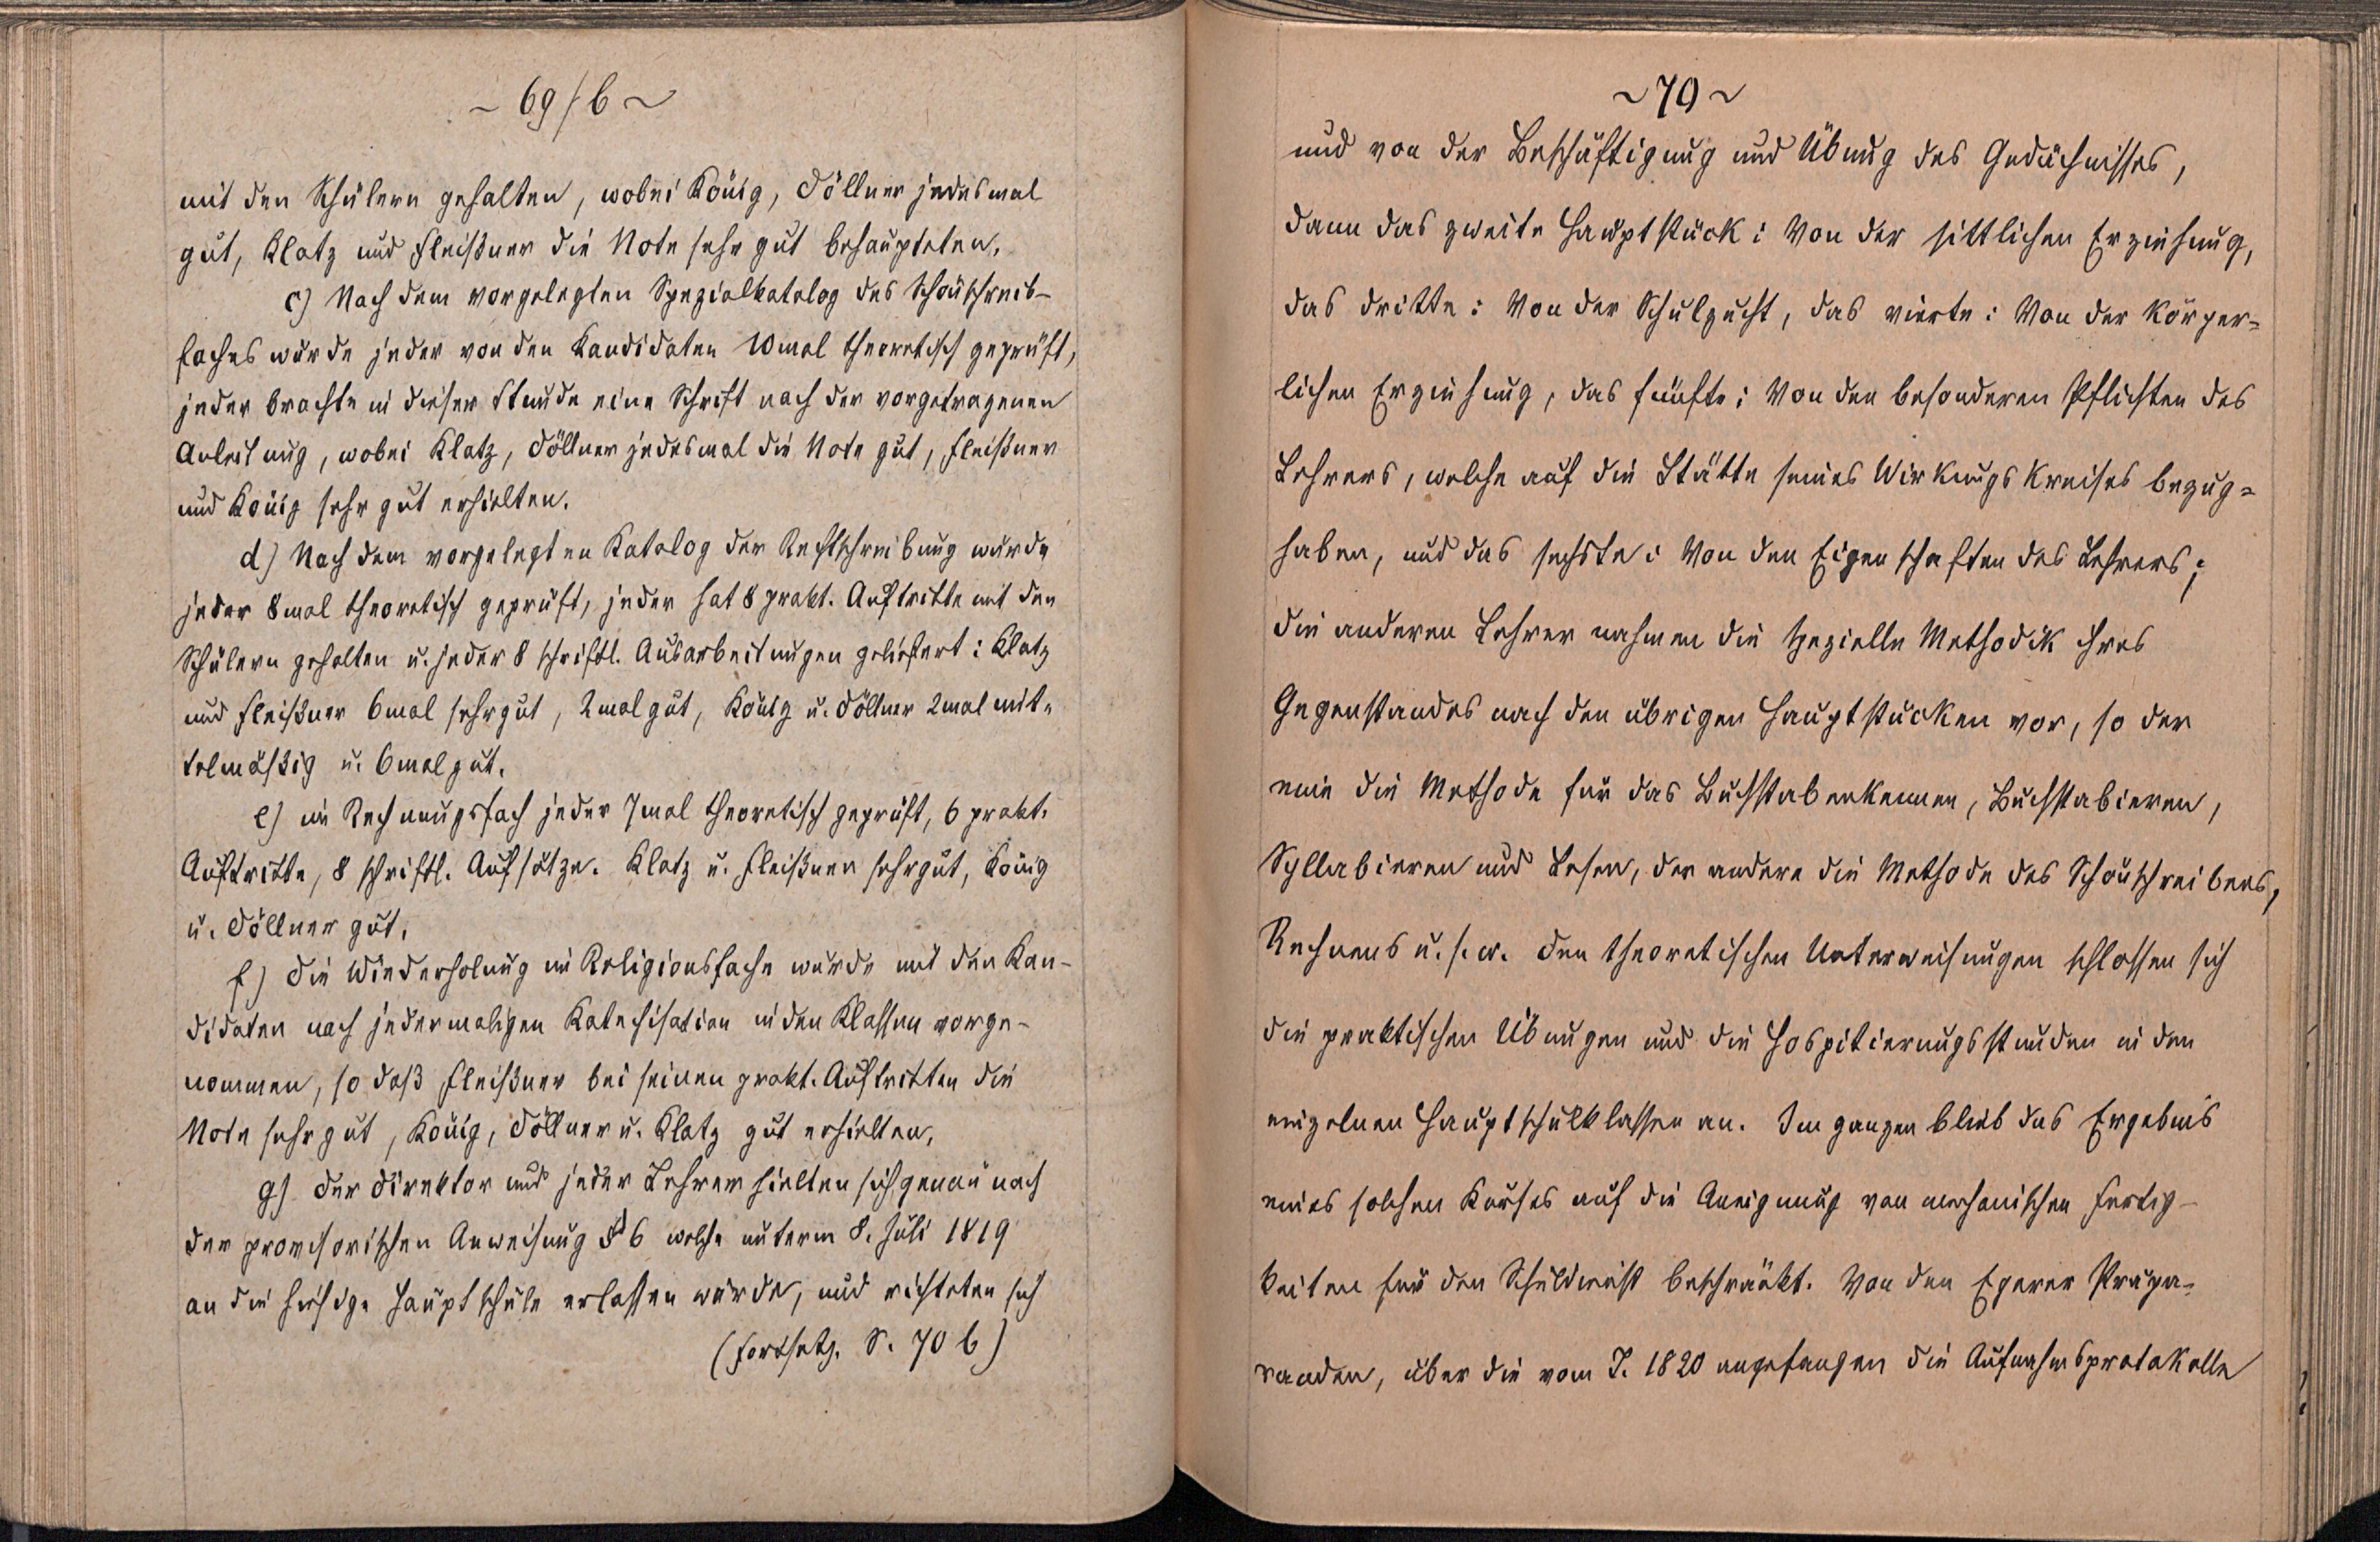 ~ 69/b ~
mit den Schülern gehalten, wobei König, Döllner jedesmal
gut, Klatz und Fleißner die Note sehr gut behaupteten.
c) Nach dem vorgelegten Spezialkatalog des Schönschreib-
faches wurde jeder von den Kandidaten 10mal theoretisch geprüft,
jeder brachte in dieser Stunde eine Schrift nach der vorgetragenen
Anleitung, wobei Klatz, Döllner jedesmal die Note gut, Fleißner
und König sehr gut erhielten.
d) Nach dem vorgelegten Katalog der Rechtschreibung wurde
jeder 8mal theoretisch geprüft, jeder hat 8 prakt. Auftritte mit den
Schülern gehalten u. jeder 8 schriftl. Ausarbeitungen geliefert: Klatz
und Fleißner 6mal sehr gut, 2mal gut, König u. Döllner 2mal mit-
telmäßig u. 6mal gut.
e) im Rechnungsfach jeder 7mal theoretisch geprüft, 6 prakt.
Auftritte, 8 schriftl. Aufsätze. Klatz u. Fleißner sehr gut, König
u. Döllner gut.
f) Die Wiederholung im Religionsfache wurde mit den Kan-
didaten nach jedermaligen Katechisation in den Klassen vorge-
nommen, so daß Fleißner bei seinen prakt. Auftritten die
Note sehr gut, König, Döllner u. Klatz gut erhielten,
g) Der Direktor und jeder Lehrer hielten sich genau nach
der provisorischen Anweisung § 6 welche unterm 8. Juli 1819
an die hiesige Hauptschule erlassen wurde, und richteten sich
(Fortsetz. S. 70 b)
~ 70 ~
und von der Beschäftigung und Übung des Gedächnisses,
dann das zweite Hauptstück: Von der sittlichen Erziehung,
das dritte: Von der Schulzucht, das vierte: Von der körper=
lichen Erziehung, das fünfte: Von den besonderen Pflichten des
Lehrers, welche auf die Stätte seines Wirkungskreises bezug=
haben, und das sechste: Von den Eigenschaften des Lehrers;
die anderen Lehrer nahmen die spezielle Methodik ihres
Gegenstandes nach den übrigen Hauptstücken vor, so der
eine die Methode für das Buchstabenkennen, Buchstabieren,
Syllabieren und Lesen, der andere die Methode des Schönschreibens,
Rechnens u. s. w. Den theoretischen Unterweisungen schlossen sich
die praktischen Übungen und die Hospitierungsstunden in den
einzelnen Hauptschulklassen an. Im ganzen blieb das Ergebnis
eines solchen Kurses auf die Aneignung von mechanischen Fertig-
keiten für den Schuldienst beschränkt. Von den Egerer Präpa=
randen, über die vom J. 1820 angefangen die Aufnahmsprotokolle